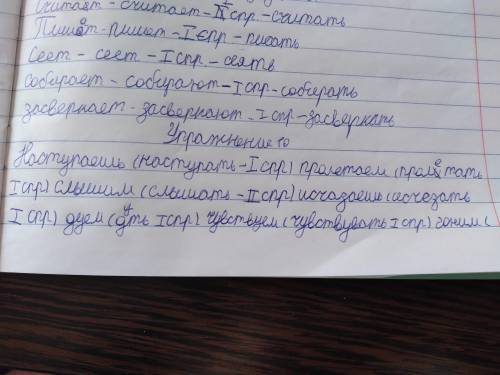 считает - считает - II спр. - считать
Пишет - пишет - I спр. - писать
Сеет - сеет - I спр. - сеять
собирает - собирают - I спр - собирать
засверкает - засверкают - I спр - засверкать
Упражнение 10
Наступаешь (наступать - I спр) пролетаем (пролетать
I спр) слышим (слышать - II спр) исчезаешь (исчезать
I спр) дуем (дуть I спр) чувствуем (чувствувать I спр) гоним (